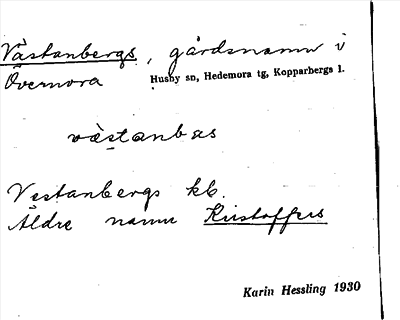 Västanbergs, gårdsnamn i
Övernora Husby sn, Hedemora tg, Kopparbergs l.
västanbas
Vestanbergs kb.
Äldre namn Kristoffers
Karin Hessling 1930